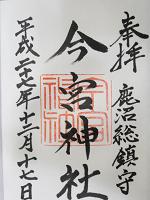 奉拝
鹿沼総鎮守
今宮神社
平成二十七年十二月十七日